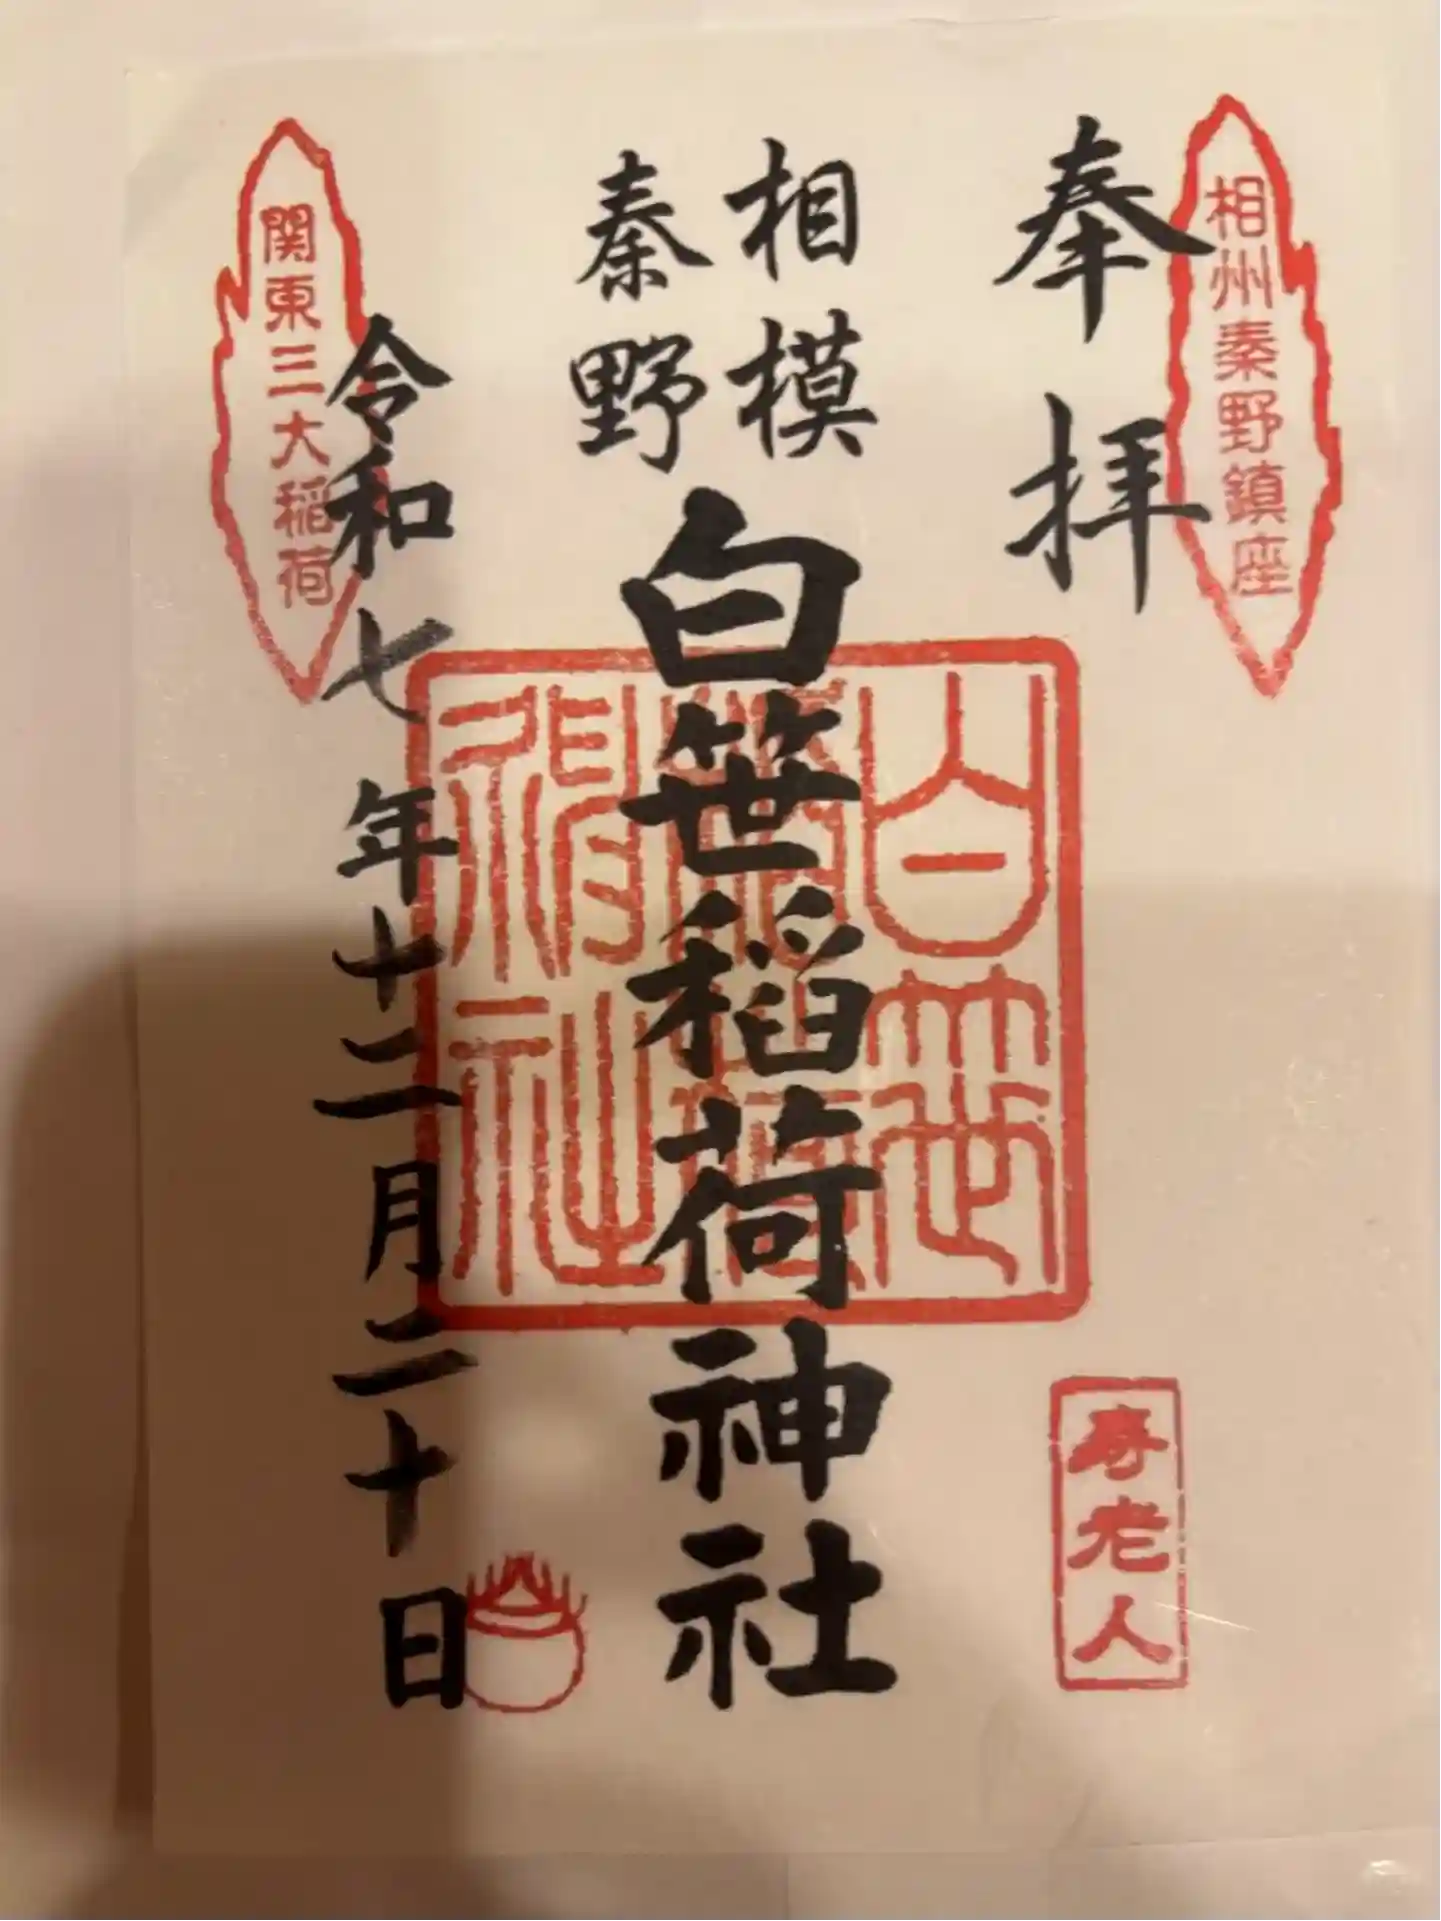 相州秦野鎮座
奉拝
相模
秦野
白笹稲荷神社
白笹
稲荷
神社
令和七年十二月二十日
関東三大稲荷
寿老人